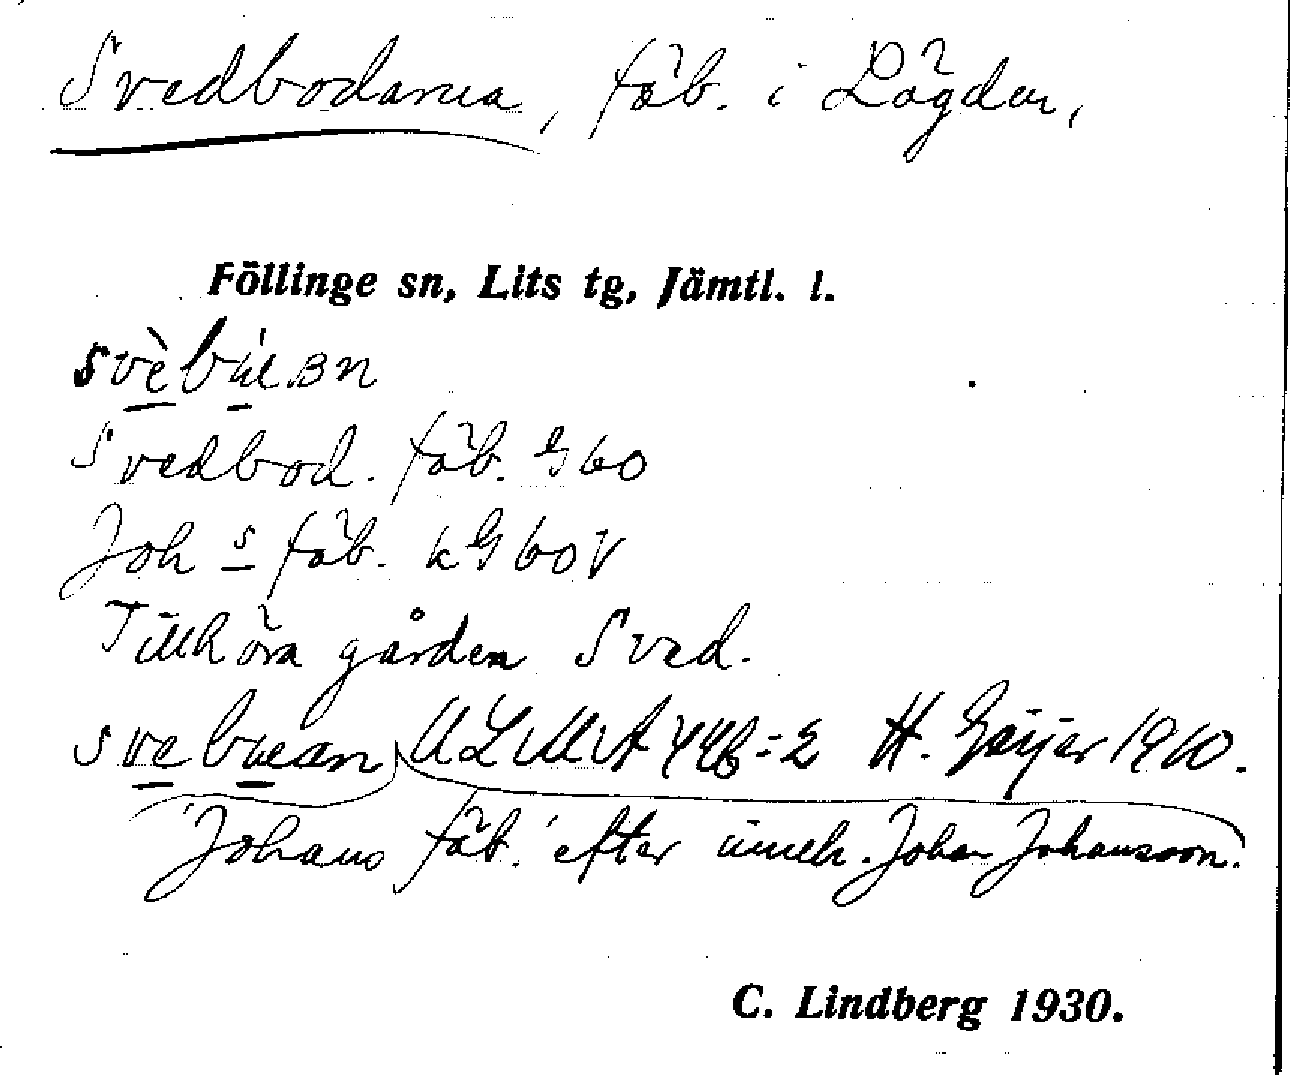 Svedbodarna, fäb. i Lögden,
Föllinge sn, Lits tg, Jämtl. l.
Svedbod. fäb. G60
Joh s fäb. kG60V
Tillhöra gården Sved.
svebuean ULMA 446:2 H. Geijer 1910.
'Johans fäb.' efter inneh. Johan Johansson.
C. Lindberg 1930.